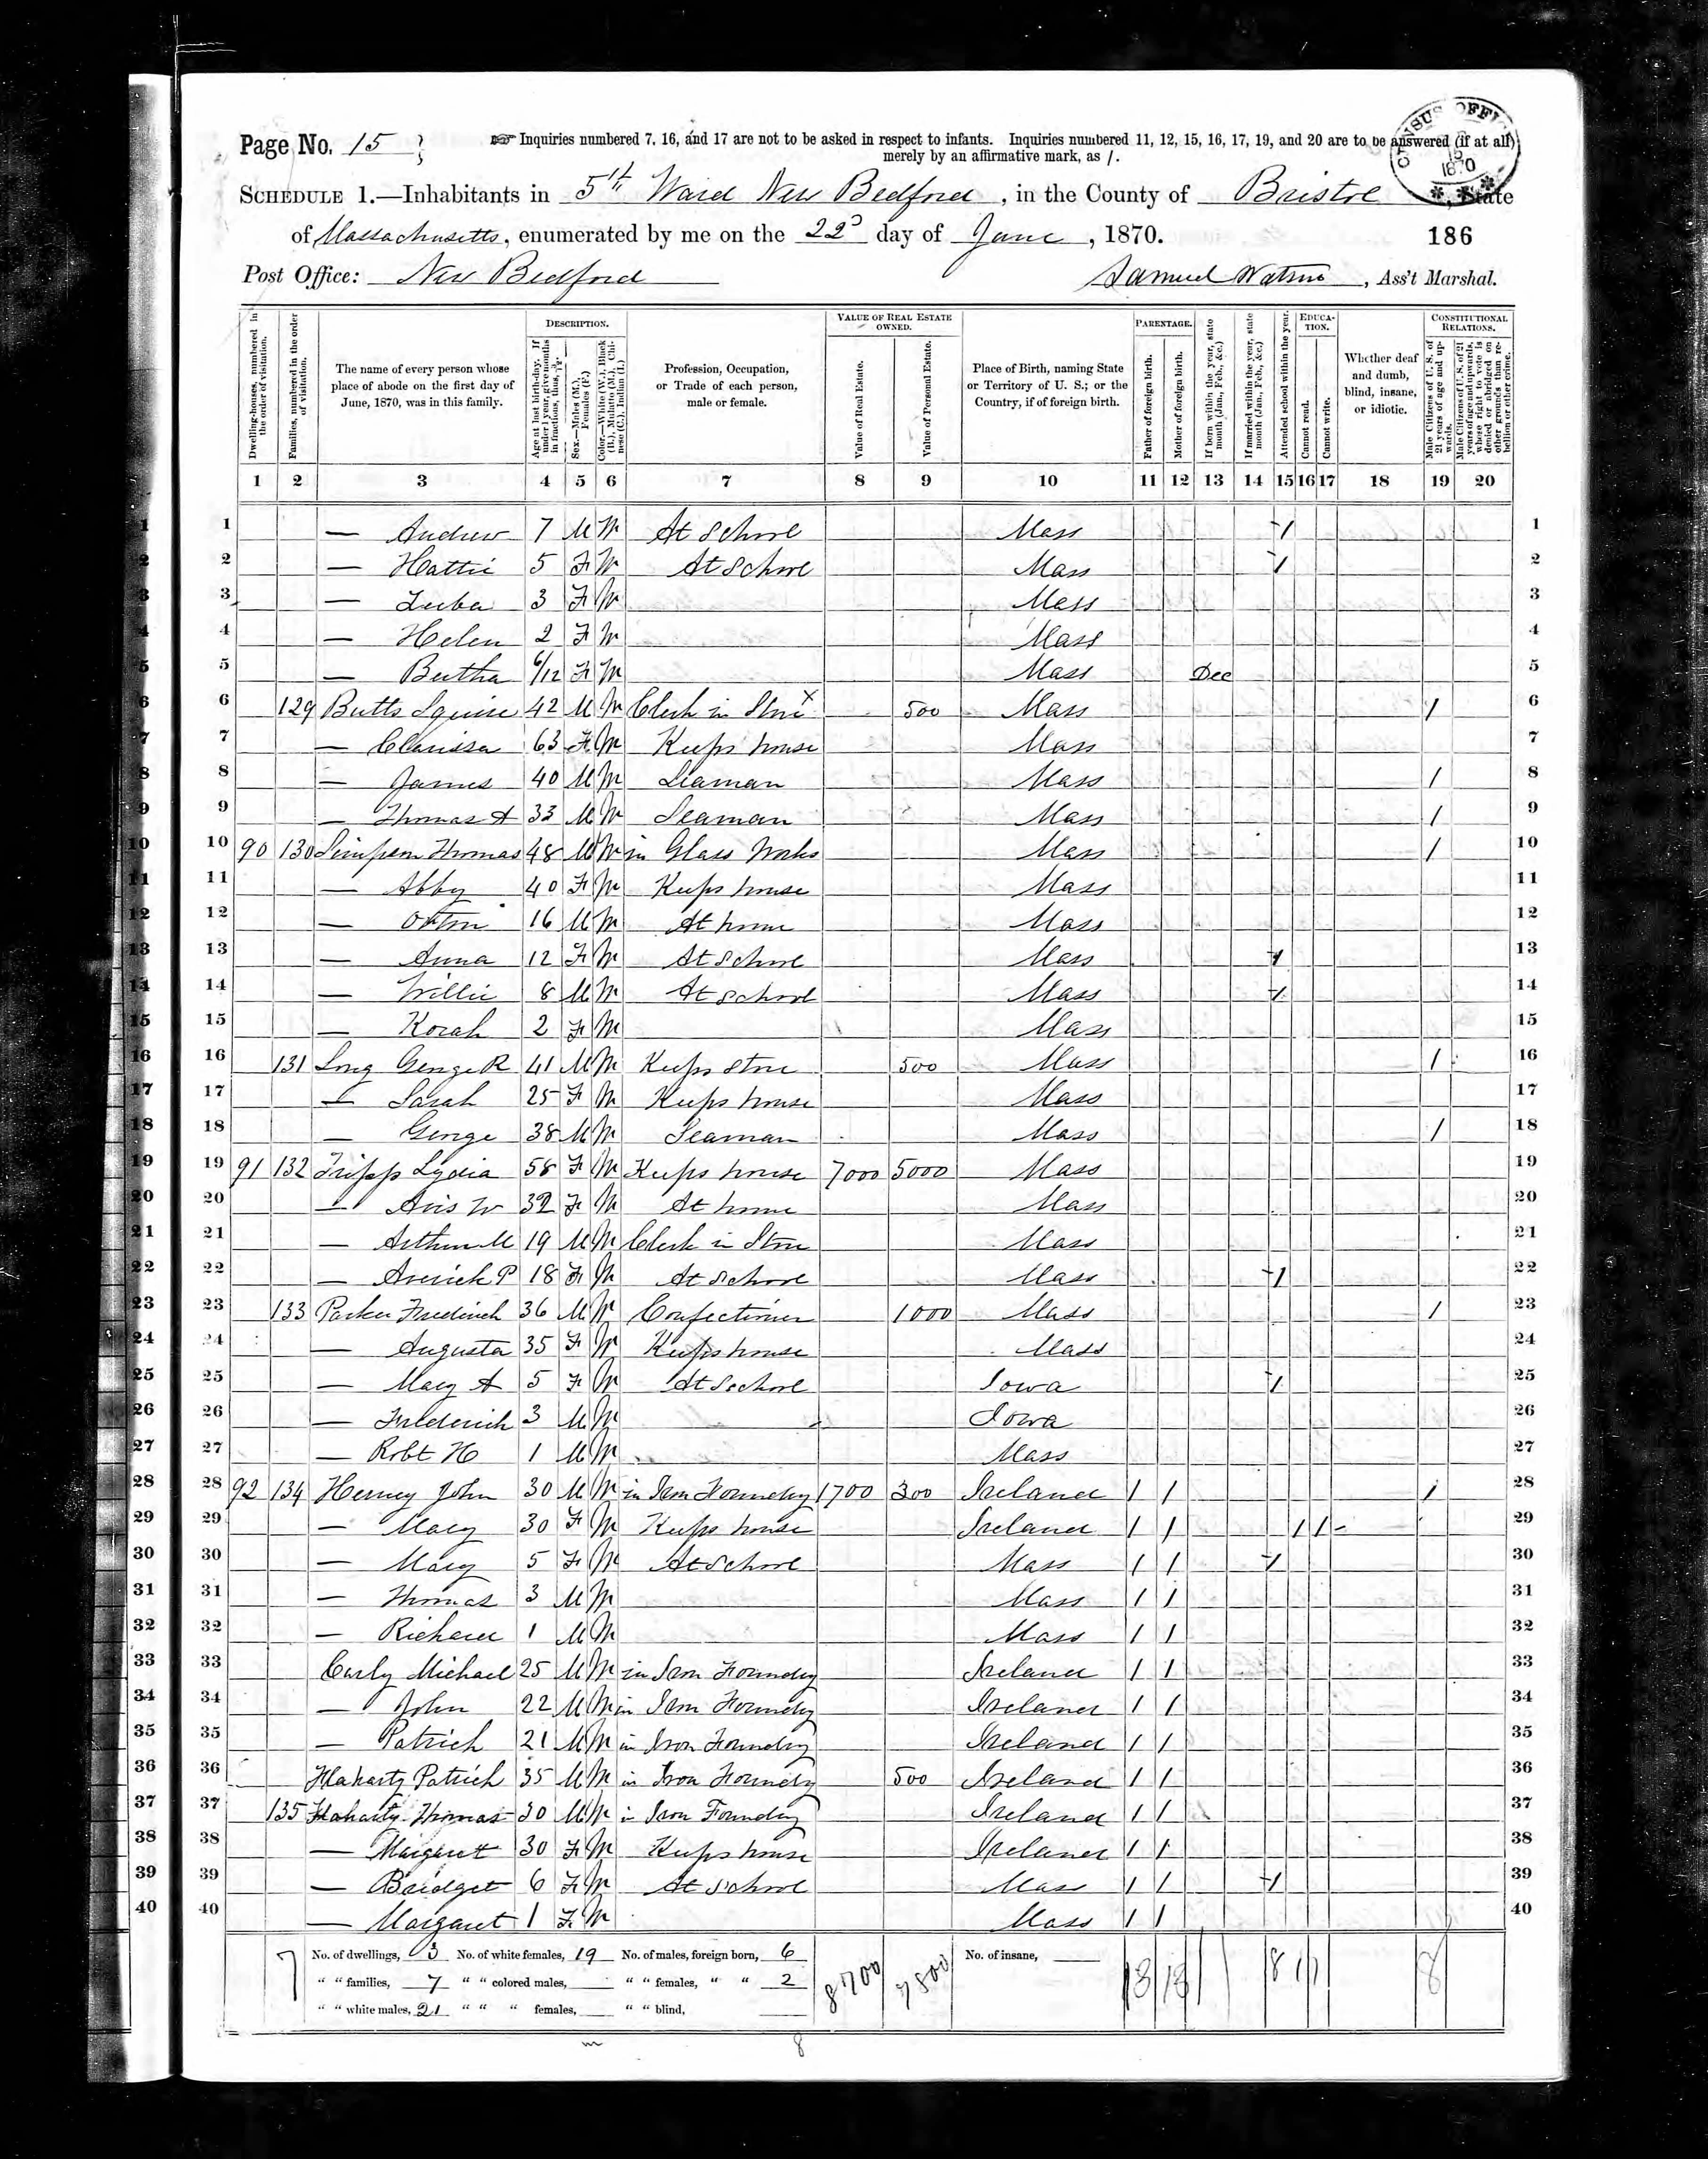 Page No. 15
☞ Inquiries numbered 7, 16, and 17 are not to be asked in respect to infants. Inquiries numbered 11, 12, 15, 16, 17, 19, and 20 are to be answered (if at all)
merely by an affirmative mark, as /.
CENSUS OFFI 1870
SCHEDULE 1.—Inhabitants in 5th Ward New Bedford, in the County of Bristol, State
of Massachusetts, enumerated by me on the 22d day of June, 1870. 186
Post Office: New Bedford Samuel Watson, Ass't Marshal.
Dwelling-houses, numbered in the order of visitation.
Families, numbered in the order of visitation.
The name of every person whose place of abode on the first day of June, 1870, was in this family.
DESCRIPTION.
Age at last birth-day. If under 1 year, give months in fractions, thus, 3/12.
Sex.—Males (M.), Females (F.)
Color.—White (W.), Black (B.), Mulatto (M.), Chinese (C.), Indian (I.)
Profession, Occupation, or Trade of each person, male or female.
VALUE OF REAL ESTATE OWNED.
Value of Real Estate.
Value of Personal Estate.
Place of Birth, naming State or Territory of U. S.; or the Country, if of foreign birth.
PARENTAGE.
Father of foreign birth.
Mother of foreign birth.
If born within the year, state month (Jan., Feb., &c.)
If married within the year, state month (Jan., Feb., &c.)
Attended school within the year.
EDUCATION.
Cannot read.
Cannot write.
Whether deaf and dumb, blind, insane, or idiotic.
CONSTITUTIONAL RELATIONS.
Male Citizens of U. S. of 21 years of age and upwards.
Male Citizens of U. S. of 21 years of age and upwards, whose right to vote is denied or abridged on other grounds than rebellion or other crime.
1 2 3 4 5 6 7 8 9 10 11 12 13 14 15 16 17 18 19 20
1 — Andrew 7 M W At School Mass / 1
2 — Hattie 5 F W At School Mass / 2
3 — 3 F W Mass 3
4 — Helen 2 F W Mass 4
5 — Bertha 6/12 F W Mass Dec 5
6 129 Butts Squire 42 M W Clerk in Store x 500 Mass / 6
7 — Clarissa 63 F W Keeps house Mass 7
8 — James 40 M W Seaman Mass / 8
9 — Thomas A 33 M W Seaman Mass / 9
10 90 130 Simpson Thomas 48 M W in Glass Works Mass / 10
11 — Abby 40 F W Keeps house Mass 11
12 — 16 M W At home Mass 12
13 — Anna 12 F W At School Mass / 13
14 — Willie 8 M W At School Mass / 14
15 — Korah 2 F W Mass 15
16 131 Long George R 41 M W Keeps Store 500 Mass / 16
17 — Sarah 25 F W Keeps house Mass 17
18 — George 38 M W Seaman Mass / 18
19 91 132 Tripp Lydia 58 F W Keeps house 7000 5000 Mass 19
20 — Avis W 32 F W At home Mass 20
21 — Arthur M 19 M W Clerk in Store Mass 21
22 — P 18 F W At School Mass / 22
23 133 Parker Frederick 36 M W Confectioner 1000 Mass / 23
24 — Augusta 35 F W Keeps house Mass 24
25 — Mary A 5 F W At School Iowa / 25
26 — Frederick 3 M W Iowa 26
27 — Robt H 1 M W Mass 27
28 92 134 John 30 M W in Iron Foundry 1700 300 Ireland / / / 28
29 — Mary 30 F W Keeps house Ireland / / / / 29
30 — Mary 5 F W At School Mass / / / 30
31 — Thomas 3 M W Mass / / 31
32 — Richard 1 M W Mass / / 32
33 Michael 25 M W in Iron Foundry Ireland / / 33
34 — John 22 M W in Iron Foundry Ireland / / 34
35 — Patrick 21 M W in Iron Foundry Ireland / / 35
36 Flaharty Patrick 35 M W in Iron Foundry 500 Ireland / / 36
37 135 Flaharty Thomas 30 M W in Iron Foundry Ireland / / 37
38 — Margarett 30 F W Keeps house Ireland / / 38
39 — Bridget 6 F W At School Mass / / / 39
40 — Margaret 1 F W Mass / / 40
7 No. of dwellings, 3 No. of white females, 19 No. of males, foreign born, 6 8700 7800 No. of insane, 13 13 8 1 1 8
" " families, 7 " " colored males, " " females, " " 2
" " white males, 21 " " " females, " " blind,
m 8